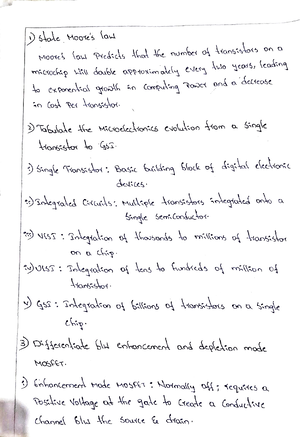 1) State Moore's law
Moore's law Predicts that the number of transistors on a
microchip will double approximately every two years, leading
to exponential growth in computing Power and a decrease
in Cost Per transistor.
2) Tabulate the Microelectronics evolution from a Single
transistor to GSI.
i) Single Transistor : Basic building block of digital electronic
devices.
ii) Integrated Circuits : Multiple transistors integrated onto a
Single Semiconductor.
iii) VLSI : Integration of thousands to millions of transistor
on a chip.
iv) ULSI : Integration of tens to hundreds of million of
transistor.
v) GSI : Integration of billions of transistors on a Single
chip.
3) Differentiate b/w enhancement and depletion mode
MOSFET.
i) Enhancement Mode MOSFET : Normally off; requires a
Positive Voltage at the gate to Create a Conductive
Channel b/w the Source & drain.